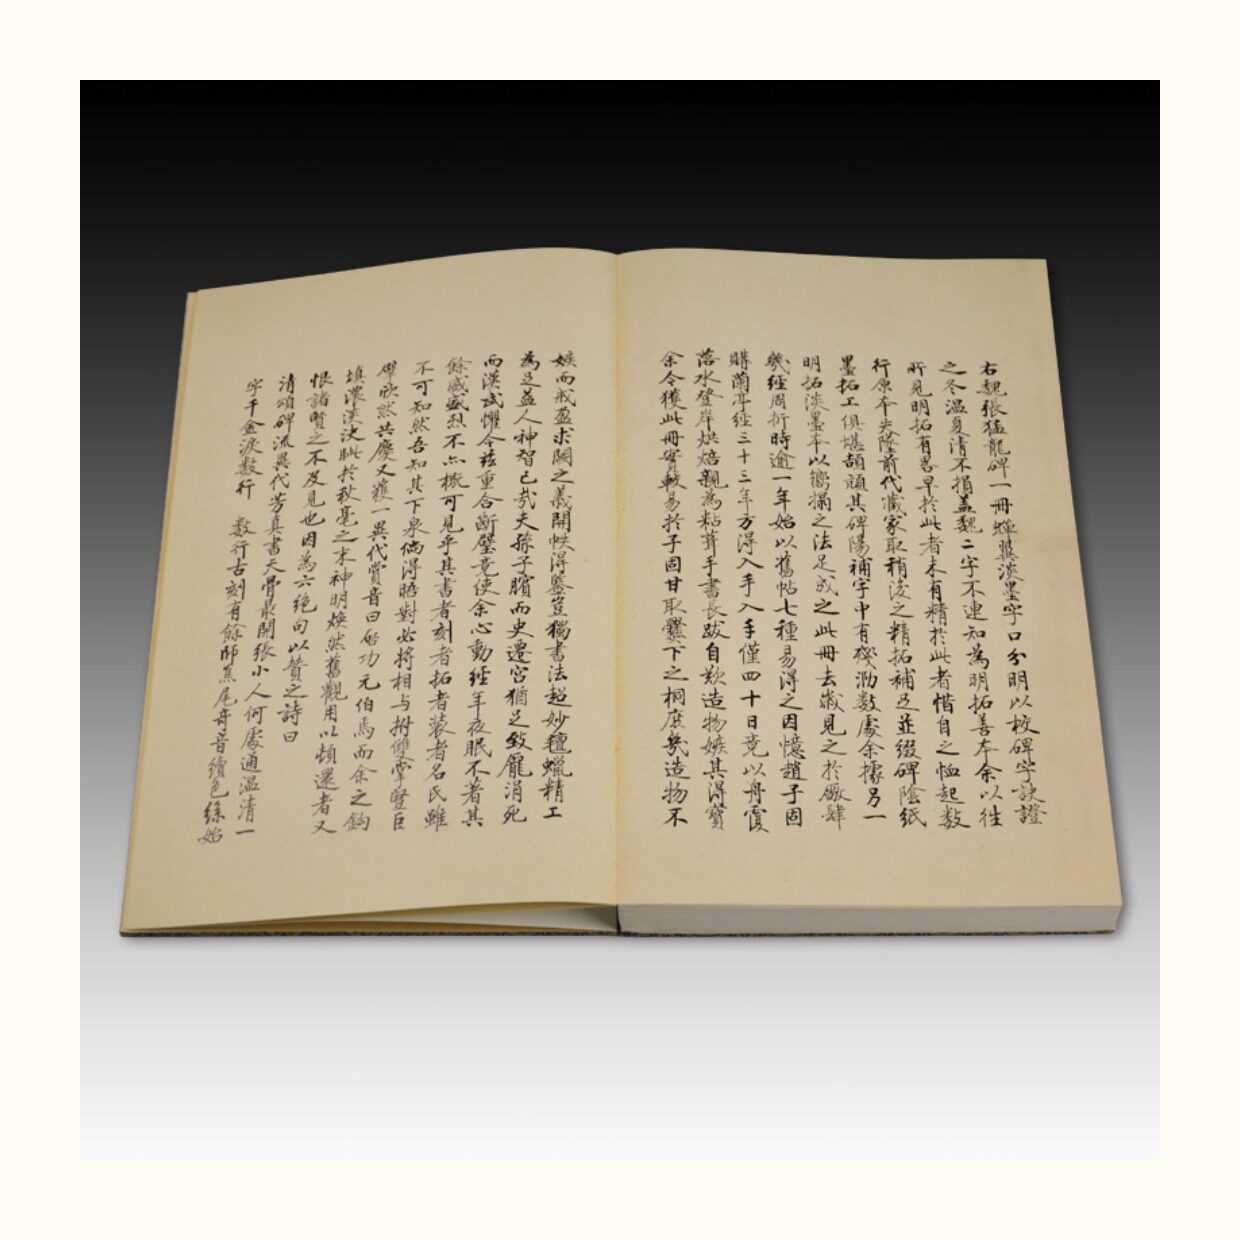 右魏張猛龍碑一冊蟬翼淡墨字口分明以校碑字訣證
之冬溫夏清不損蓋魏二字不連知為明拓善本余以往
所見明拓有畧早於此者未有精於此者惜自之恤起數
行原本失墜前代藏家取稍後之精拓補足並綴碑陰紙
墨拓工俱堪頡頏其碑陽補字中有殘泐數處余據另一
明拓淡墨本以嚮搨之法足成之此冊去歲見之於廠肆
幾經周折時逾一年始以舊帖七種易得之因憶趙子固
購蘭亭經三十三年方得入手入手僅四十日竟以舟覆
落水登岸烘焙親為粘葺手書長跋自歎造物嫉其得寶
余今獲此冊實較易於子固甘取爨下之桐庶幾造物不
嫉而戒盈求闕之義開帙得鑒豈獨書法超妙氊蠟精工
為足益人神智已哉夫孫子臏而史遷宮猶足致龐涓死
而漢武懼今玆重合斷璧竟使余心動經年夜眠不著其
餘威盛烈不亦概可見乎其書者刻者拓者装者名氏雖
不可知然吾知其下泉倘得晤對必將相与拊雙掌豎巨
擘欣然共慶又獲一異代賞音曰啓功元伯焉而余之鈎
填濃淡決眦於秋毫之末神明煥然舊觀用以頓還者又
恨諸賢之不及見也因為六絕句以贊之詩曰
清頌碑流異代芳真書天骨最開張小人何處通溫清一
字千金淚數行 數行古刻有餘師焦尾奇音續色絲始